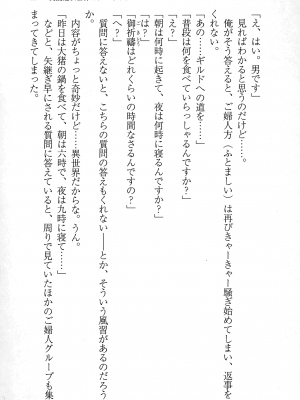 「え、はい。男です」
見ればわかると思うのだけど……。
俺がそう答えると、ご婦人方（ふとましい）は再びきゃーきゃー騒ぎ始めてしまい、返事を
くれない。
「あの……ギルドへの道を……」
「普段は何を食べていらっしゃるんですか？」
「え？」
「朝は何時に起きて、夜は何時に寝るんですか？」
「は？」
「御祈禱はどれくらいの時間なさるんですの？」
「へ？」
質問に答えないと、こちらの質問の答えもくれない――とか、そういう風習があるのだろう
か。
内容がちょっと奇妙だけど……異世界だからな。うん。
「昨日は大猪の鍋を食べて、朝は六時で、夜は九時に寝て……」
などと、矢継ぎ早にされる質問に答えていると、周りで見ていたほかのご婦人グループも集
まってきてしまった。